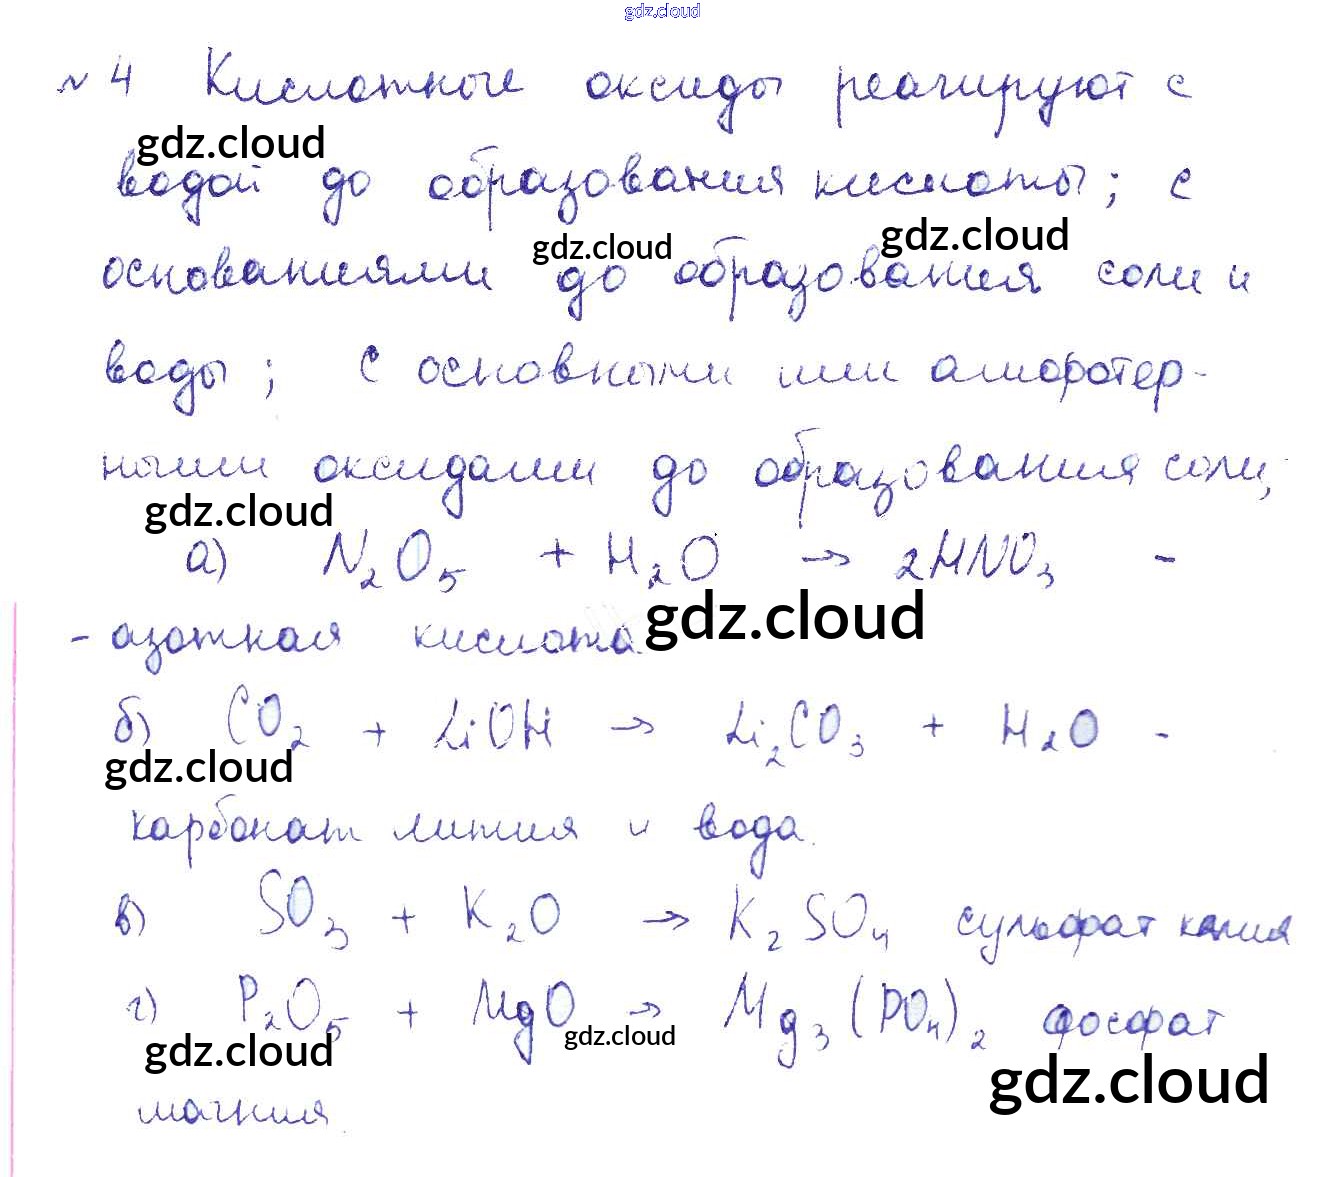 gdz.cloud
№ 4 Кислотные оксиды реагируют с
gdz.cloud
водой до образования кислоты; с
gdz.cloud gdz.cloud
основаниями до образования соли и
воды; с основными или амфотер-
ными оксидами до образования соли,
gdz.cloud
а) N₂O₅ + H₂O → 2HNO₃ -
- азотная кислота.
gdz.cloud
б) CO₂ + LiOH → Li₂CO₃ + H₂O -
gdz.cloud
карбонат лития и вода.
в) SO₃ + K₂O → K₂SO₄ сульфат калия
г) P₂O₅ + MgO → Mg₃(PO₄)₂ фосфат
gdz.cloud gdz.cloud gdz.cloud
магния.